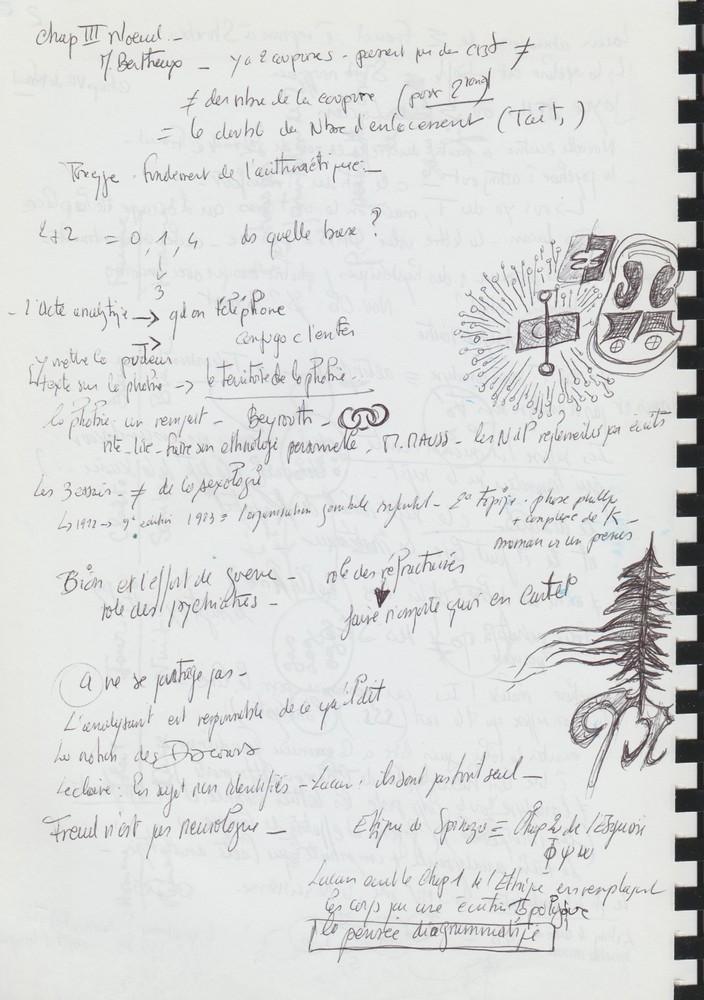 Chap III Noeud –
M Bertheux – y a 2 coupures –
≠ du nbre de la coupure (pour 2 rond)
= le double du Nbre d'enlacement (Tait,)
Frege. fondement de l'arithmétique –
2+2 = 0, 1, 4 ds quelle base ?
3
– l'Acte analytiq → qd on téléphone
conjugo c l'enfer
y mettre la
texte sur la phobie → le territoire de la phobie
la phobie un rempart – Beyrouth –
rite – lire – faire son ethnologie personnelle – M. MAUSS – les N d P
Les 3 essais – ≠ de la sexologie
↳ 19 → édition 1923 = l'organisation génitale infantile – 2e topiq. phase phalliq
+ complexe de K –
maman a un pénis
Bion et l'effort de guerre – role des réfractaires
role des psychiatres –
faire n'importe quoi en Cartel
a ne se partage pas –
L'analysant est responsable de ce qu'il dit
La notion des Discours
Leclaire : les sujet non identifiés – Lacan : ils sont pas tout seul –
Freud n'est pas neurologue –
Ethique de Spinoza = Chap 2 de l'Esquisse
Φ ψ ω
Lacan Chap 1 de l'Ethique en remplaçant
les corps par une écriture topologique
la pensée diagrammatiq